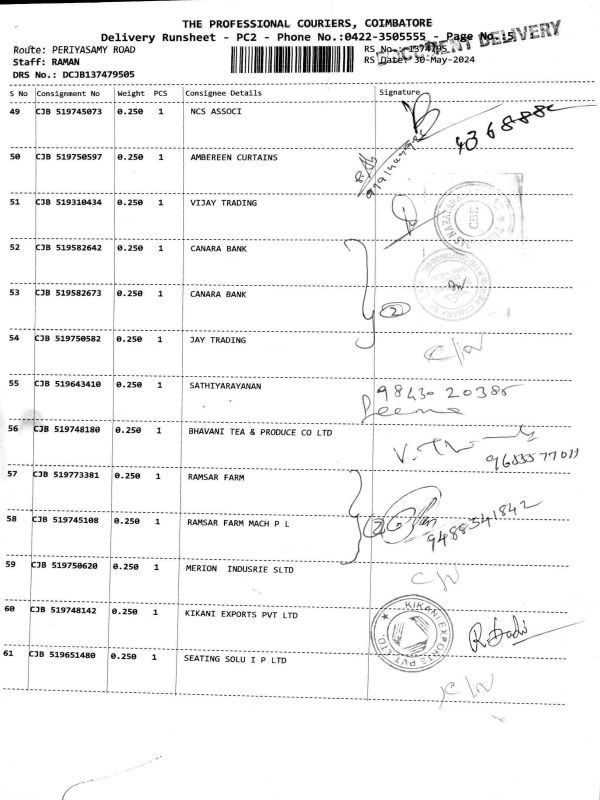 THE PROFESSIONAL COURIERS, COIMBATORE
Delivery Runsheet - PC2 - Phone No.:0422-3505555 - Page No.:5
DOCUMENT DELIVERY
Route: PERIYASAMY ROAD
RS No.:
Staff: RAMAN
RS Date: 30-May-2024
DRS No.: DCJB137479505
S No Consignment No Weight PCS Consignee Details Signature
49 CJB 519745073 0.250 1 NCS ASSOCI
50 CJB 519750597 0.250 1 AMBEREEN CURTAINS
51 CJB 519310434 0.250 1 VIJAY TRADING
CBE
52 CJB 519582642 0.250 1 CANARA BANK
53 CJB 519582673 0.250 1 CANARA BANK
2
54 CJB 519750582 0.250 1 JAY TRADING
C/N
55 CJB 519643410 0.250 1 SATHIYARAYANAN
98430 20385
56 CJB 519748180 0.250 1 BHAVANI TEA & PRODUCE CO LTD
9655577011
57 CJB 519773381 0.250 1 RAMSAR FARM
58 CJB 519745108 0.250 1 RAMSAR FARM MACH P L
2
9488541842
59 CJB 519750620 0.250 1 MERION INDUSRIE SLTD
C/N
60 CJB 519748142 0.250 1 KIKANI EXPORTS PVT LTD
KIKANI EXPORTS PVT LTD
61 CJB 519651480 0.250 1 SEATING SOLU I P LTD
C/N